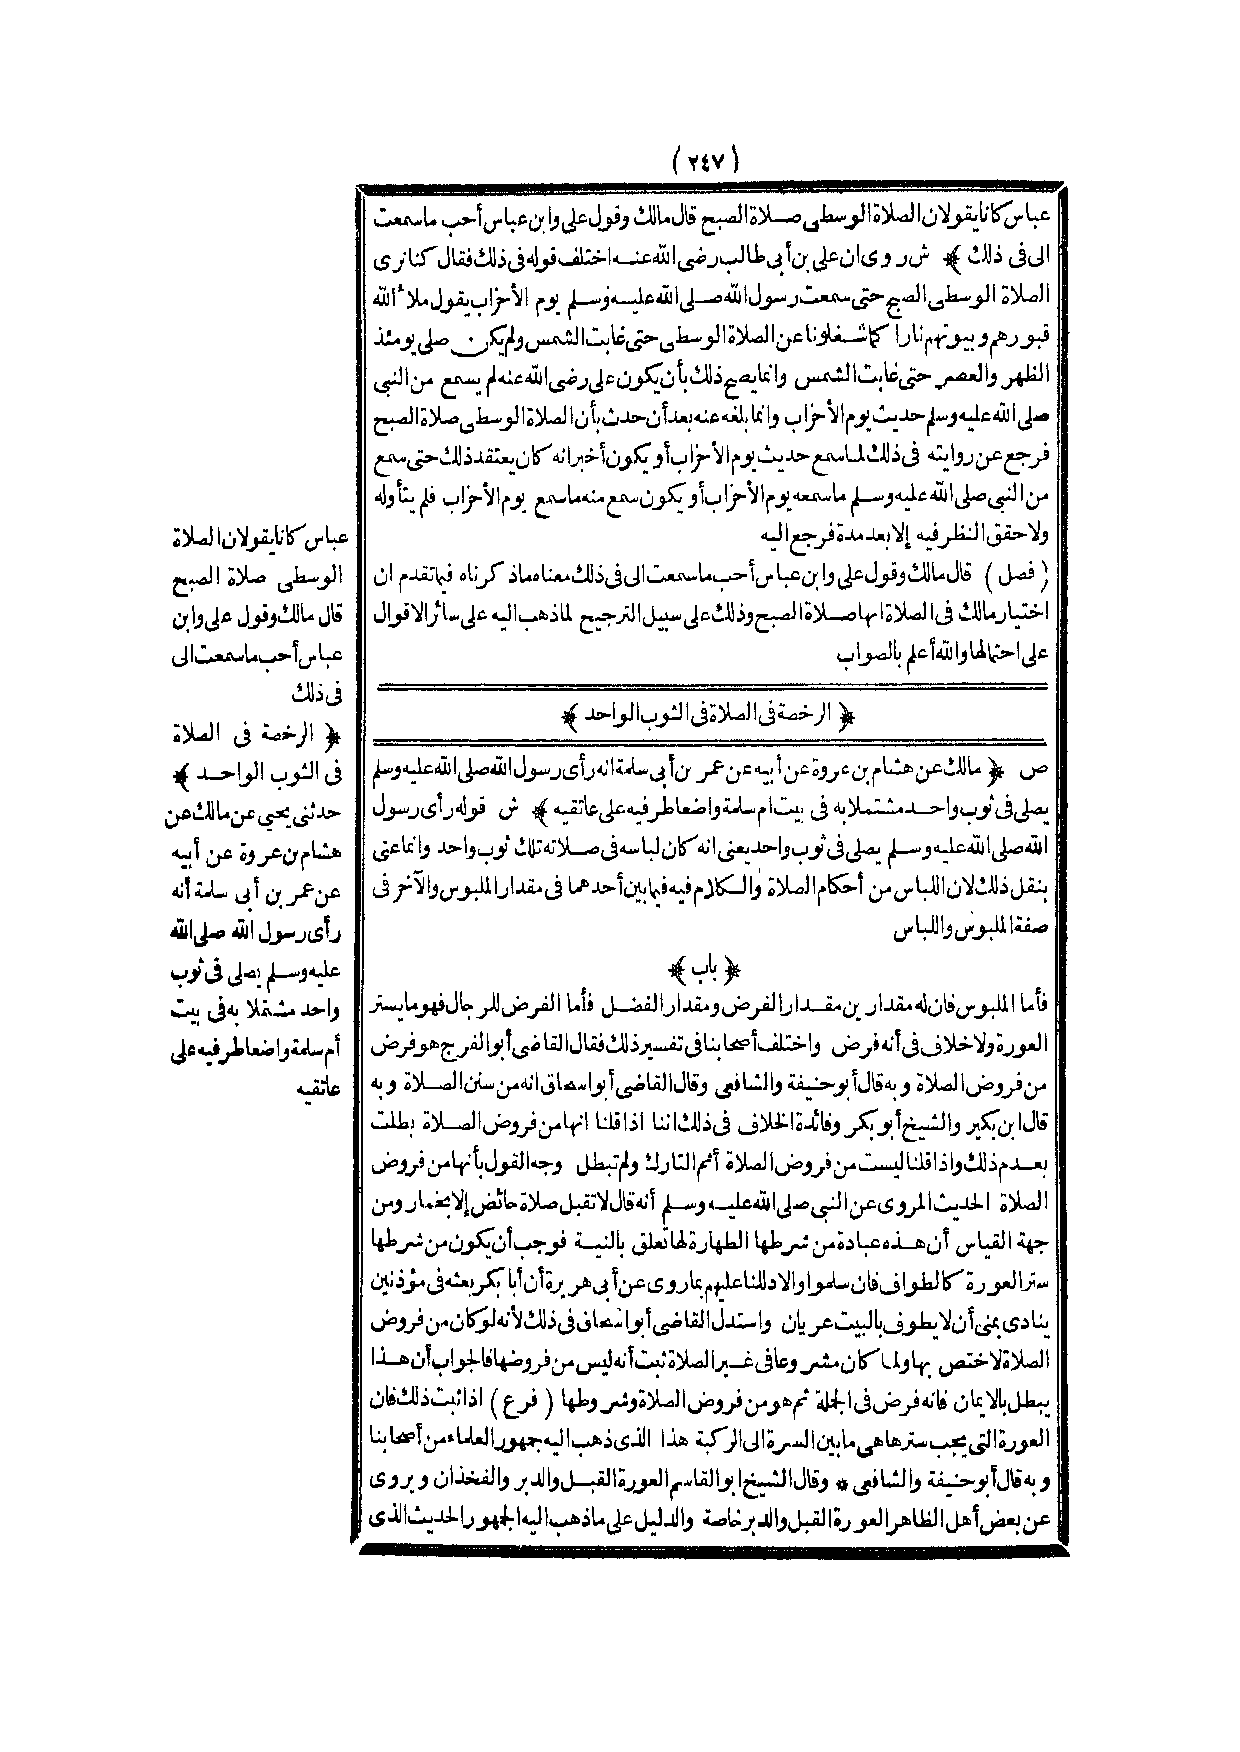 (٢٤٧)
عباس كانا يقولان الصلاة الوسطى صلاة الصبح قال مالك وقول على وابن عباس أحب ما سمعت
الى فى ذلك ﴾ ش روى ان على بن أبى طالب رضى الله عنه اختلف قوله فى ذلك فقال كنا نرى
الصلاة الوسطى الصبح حتى سمعت رسول الله صلى الله عليه وسلم يوم الأحزاب يقول ملأ الله
قبورهم وبيوتهم نارا كما شغلونا عن الصلاة الوسطى حتى غابت الشمس ولم يكن صلى يومئذ
الظهر والعصر حتى غابت الشمس وانما يصح ذلك بأن يكون على رضى الله عنه لم يسمع من النبى
صلى الله عليه وسلم حديث يوم الأحزاب وانما بلغه عنه بعد أن حدث بأن الصلاة الوسطى صلاة الصبح
فرجع عن روايته فى ذلك لما سمع حديث يوم الأحزاب أو يكون أخبر انه كان يعتقد ذلك حتى سمع
من النبى صلى الله عليه وسلم ما سمعه يوم الأحزاب أو يكون سمع منه ما سمع يوم الأحزاب فلم يتأوله
ولا حقق النظر فيه إلا بعد مدة فرجع اليه
(فصل) قال مالك وقول على وابن عباس أحب ما سمعت الى فى ذلك معناه ما ذكرناه فيما تقدم ان
اختيار مالك فى الصلاة انها صلاة الصبح وذلك على سبيل الترجيح لما ذهب اليه على سائر الاقوال
على احتمالها والله أعلم بالصواب
﴿ الرخصة فى الصلاة فى الثوب الواحد ﴾
ص ﴿ مالك عن هشام بن عروة عن أبيه عن عمر بن أبى سلمة انه رأى رسول الله صلى الله عليه وسلم
يصلى فى ثوب واحد مشتملا به فى بيت ام سلمة واضعا طرفيه على عاتقيه ﴾ ش قوله رأى رسول
الله صلى الله عليه وسلم يصلى فى ثوب واحد يعنى انه كان لباسه فى صلاته تلك ثوب واحد وانما عنى
بنقل ذلك لان اللباس من أحكام الصلاة والكلام فيه فيما بين أحدهما فى مقدار الملبوس والآخر فى
صفة الملبوس واللباس
﴿ باب ﴾
فأما الملبوس فان له مقدارين مقدار الفرض ومقدار الفضل فأما الفرض للرجال فهو ما يستر
العورة ولا خلاف فى أنه فرض واختلف أصحابنا فى تفسير ذلك فقال القاضى أبو الفرج هو فرض
من فروض الصلاة وبه قال أبو حنيفة والشافعى وقال القاضى أبو اسحاق انه من سنن الصلاة وبه
قال ابن بكير والشيخ أبو بكر وفائدة الخلاف فى ذلك اننا اذا قلنا انها من فروض الصلاة بطلت
بعدم ذلك واذا قلنا ليست من فروض الصلاة أثم التارك ولم تبطل وجه القول بأنها من فروض
الصلاة الحديث المروى عن النبى صلى الله عليه وسلم أنه قال لا تقبل صلاة حائض إلا بخمار ومن
جهة القياس أن هذه عبادة من شرطها الطهارة لها تعلق بالنية فوجب أن يكون من شرطها
ستر العورة كالطواف فان سلموا والا دللنا عليهم بما روى عن أبى هريرة أن أبا بكر بعثه فى مؤذنين
ينادى بمنى أن لا يطوف بالبيت عريان واستدل القاضى أبو اسحاق فى ذلك لأنه لو كان من فروض
الصلاة لاختص بها ولما كان مشروعا فى غير الصلاة ثبت أنه ليس من فروضها فالجواب أن هذا
يبطل بالايمان فانه فرض فى الجملة ثم هو من فروض الصلاة وشروطها (فرع) اذا ثبت ذلك فان
العورة التى يجب سترها هى ما بين السرة الى الركبة هذا الذى ذهب اليه جمهور العلماء من أصحابنا
وبه قال أبو حنيفة والشافعى * وقال الشيخ ابو القاسم العورة القبل والدبر والفخذان ويروى
عن بعض أهل الظاهر العورة القبل والدبر خاصة والدليل على ما ذهب اليه الجمهور الحديث الذى
عباس كانا يقولان الصلاة
الوسطى صلاة الصبح
قال مالك وقول على وابن
عباس أحب ما سمعت الى
فى ذلك
﴿ الرخصة فى الصلاة
فى الثوب الواحد ﴾
حدثنى يحيى عن مالك عن
هشام بن عروة عن أبيه
عن عمر بن أبى سلمة أنه
رأى رسول الله صلى الله
عليه وسلم يصلى فى ثوب
واحد مشتملا به فى بيت
أم سلمة واضعا طرفيه على
عاتقيه